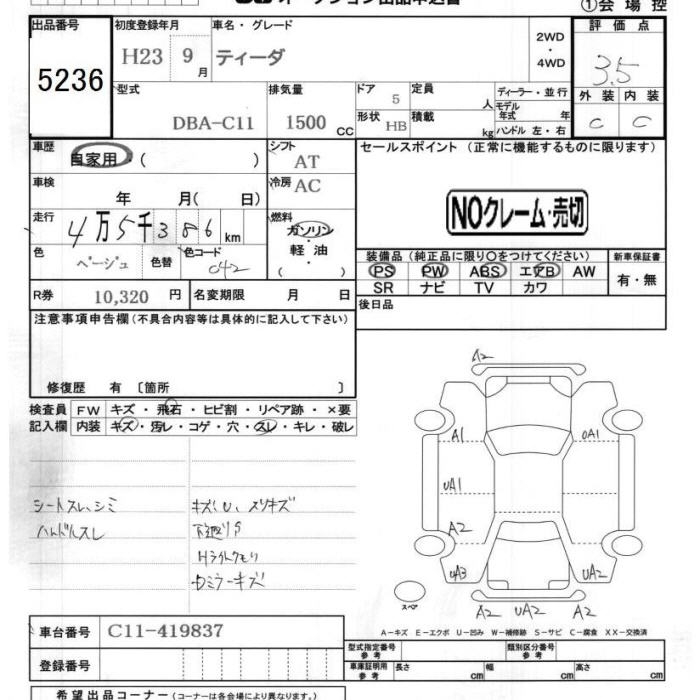 オークション出品申込書
①会場控
出品番号
5236
初度登録年月
H23 9月
車名・グレード
ティーダ
2WD
・
4WD
評価点
3.5
外装 内装
C C
型式
DBA-C11
排気量
1500 CC
ドア
5
形状
HB
定員
人
積載
kg
ディーラー・並行
モデル年式 年
ハンドル 左・右
車歴
自家用・( )
シフト
AT
車検
年 月( 日)
冷房
AC
走行
4万5千386km
燃料
ガソリン
・
軽油
( )
色
ベージュ
色替
色コード
042
セールスポイント (正常に機能するものに限ります)
NOクレーム・売切
装備品(純正品に限り○をつけてください)
PS PW ABS エアB AW
SR ナビ TV カワ
新車保証書
有・無
R券 10,320 円
名変期限 月 日
後日品
注意事項申告欄(不具合内容等は具体的に記入して下さい)
修復歴 有 〔箇所 〕
検査員
記入欄
FW キズ・飛石・ヒビ割・リペア跡・×要
内装 キズ・汚レ・コゲ・穴・スレ・キレ・破レ
シートスレ、シミ
ハンドルスレ
キズ、U、スリキズ
下廻りS
Hライトクモリ
ミラーキズ
A2
A1
UA1
UA1
A2
UA3
UA2
A2 UA2 A2
スペア
A-キズ E-エクボ U-凹み W-補修跡 S-サビ C-腐食 XX-交換済
車台番号 C11-419837
登録番号
型式指定番号
参考
類別区分番号
参考
車庫証明用
参考
長さ cm
幅 cm
高さ cm
希望出品コーナー(コーナーは各会場により異なります。)